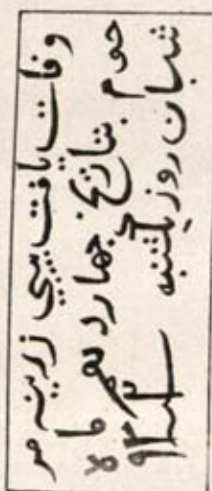 وفات یافت بیبی زرینه مر
حوم بتاریخ چهاردهم ماه
شبان روز یکشنبه